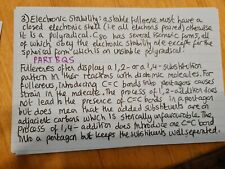 3) Electronic Stability: a stable fullerene must have a
closed electronic shell (i.e. all electrons paired) otherwise
it is a polyradical. C80 has several isomeric forms, all
of which obey the electronic stability rule except for the
spherical form which is an unstable polyradical.
PART B QS
Fullerenes often display a 1,2- or a 1,4- substitution
pattern in their reactions with diatomic molecules. For
fullerenes, introducing C=C bonds into pentagons causes
strain in the molecule. The process of 1,2-addition does
not lead to the presence of C=C bonds in a pentagon
but does mean that the added substituents are on
adjacent carbons which is sterically unfavourable. The
process of 1,4-addition does introduce one C=C bond
into a pentagon but keeps the substituents well separated.